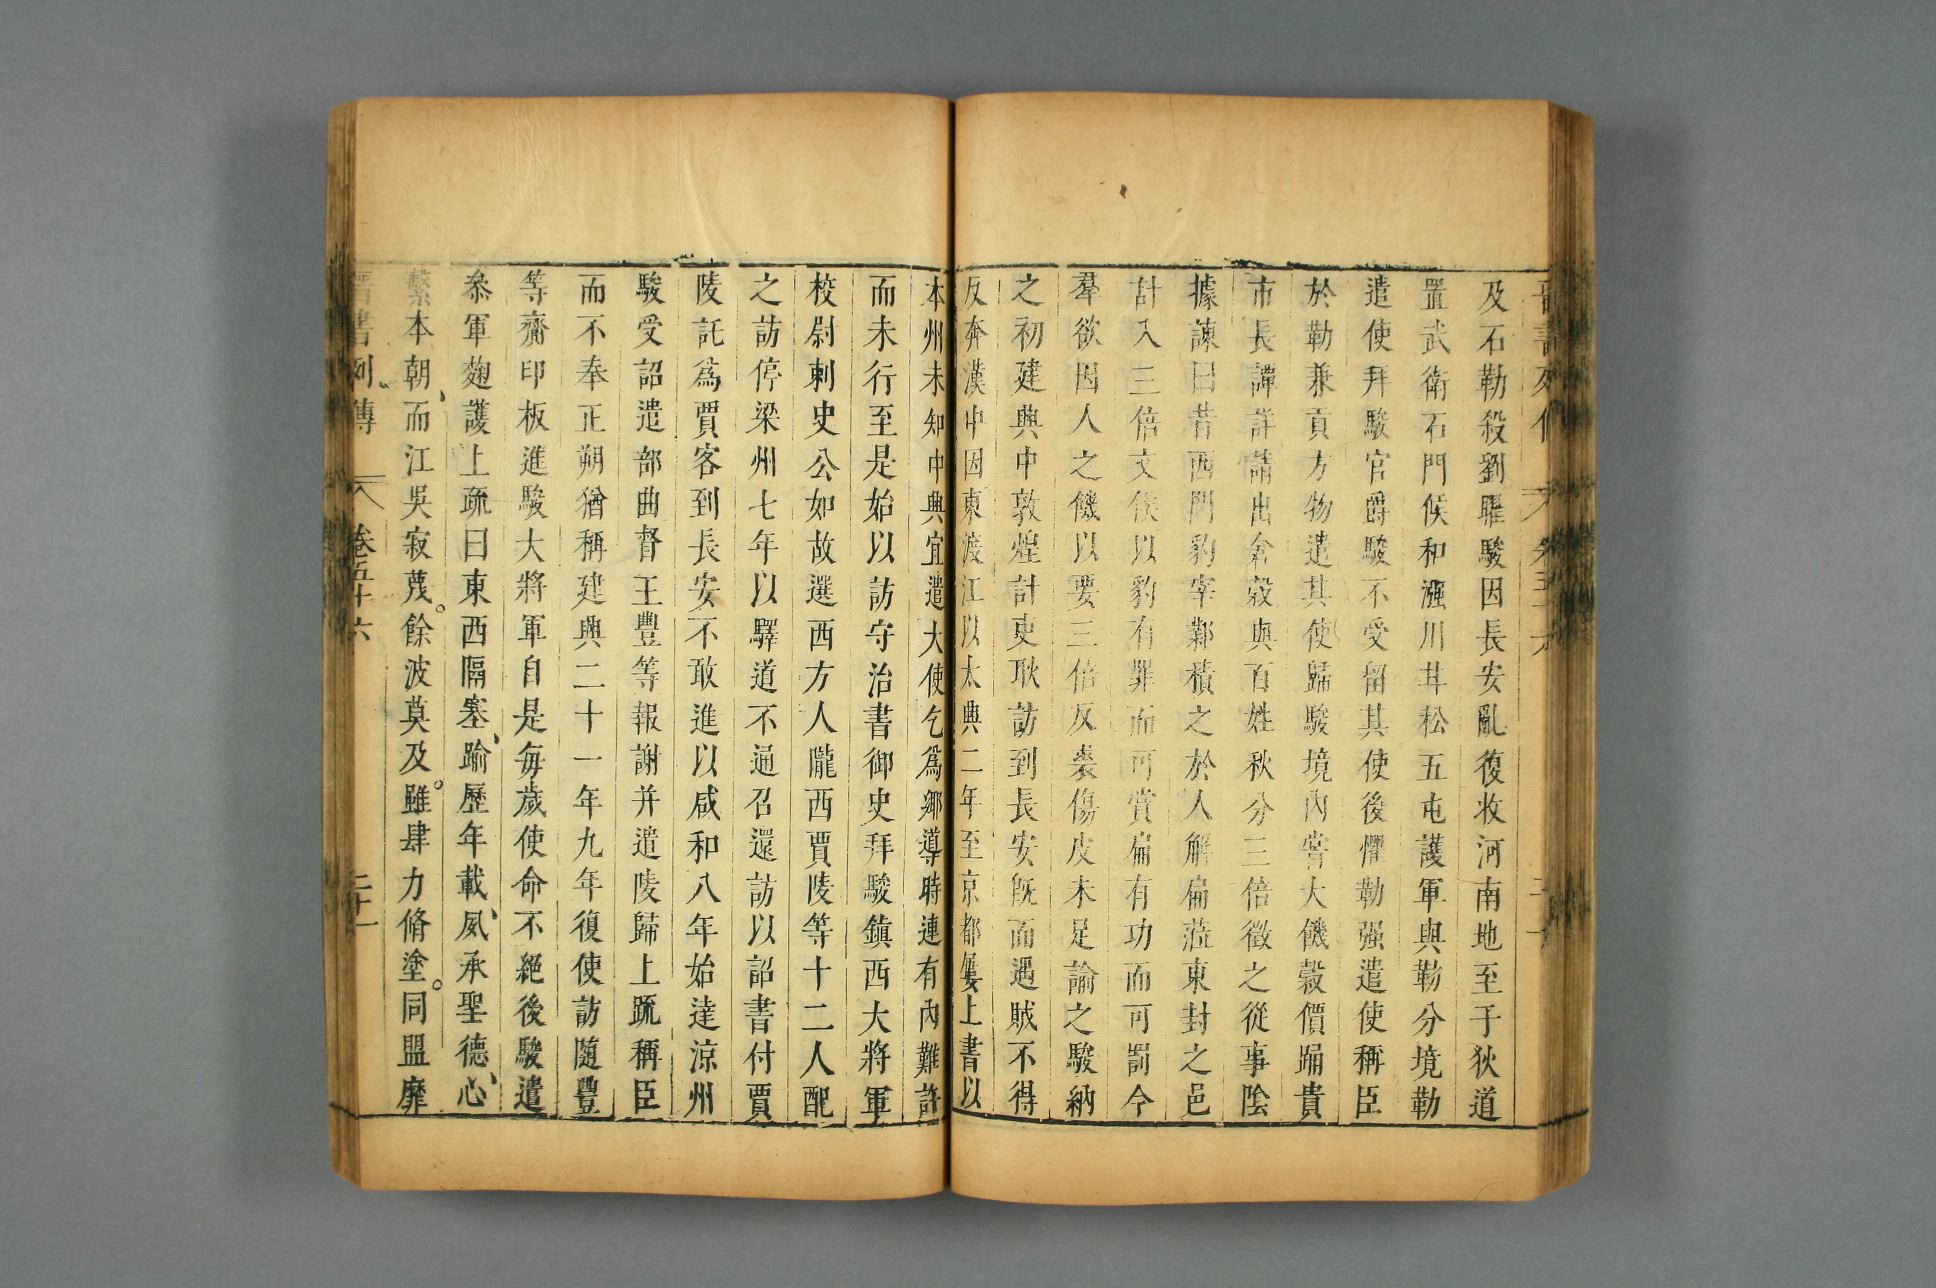 及石勒殺劉曜駿因長安亂復收河南地至于狄道
置武衛石門候和漒川甘松五屯護軍與勒分境勒
遣使拜駿官爵駿不受留其使後懼勒强遣使稱臣
於勒兼貢方物遣其使歸駿境內嘗大饑穀價踊貴
市長譚詳請出倉穀與百姓秋分三倍徵之從事陰
據諫曰昔西門豹宰鄴積之於人解扁蒞東封之邑
計入三倍文侯以豹有罪而可賞扁有功而可罰今
羣欲因人之饑以要三倍反裘傷皮未足諭之駿納
之初建興中敦煌計吏耿訪到長安旣而遇賊不得
反奔漢中因東渡江以太興二年至京都屢上書以
本州未知中興宜遣大使乞爲鄉導時連有內難許
而未行至是始以訪守治書御史拜駿鎮西大將軍
校尉刺史公如故選西方人隴西賈陵等十二人配
之訪停梁州七年以驛道不通召還訪以詔書付賈
陵託爲賈客到長安不敢進以咸和八年始達涼州
駿受詔遣部曲督王豐等報謝并遣陵歸上疏稱臣
而不奉正朔猶稱建興二十一年九年復使訪隨豐
等齎印板進駿大將軍自是每歲使命不絕後駿遣
叅軍麴護上疏曰東西隔塞踰歷年載夙承聖德心
繫本朝而江吳寂蔑餘波莫及雖肆力脩塗同盟靡
晉書列傳 卷五十六 二十一